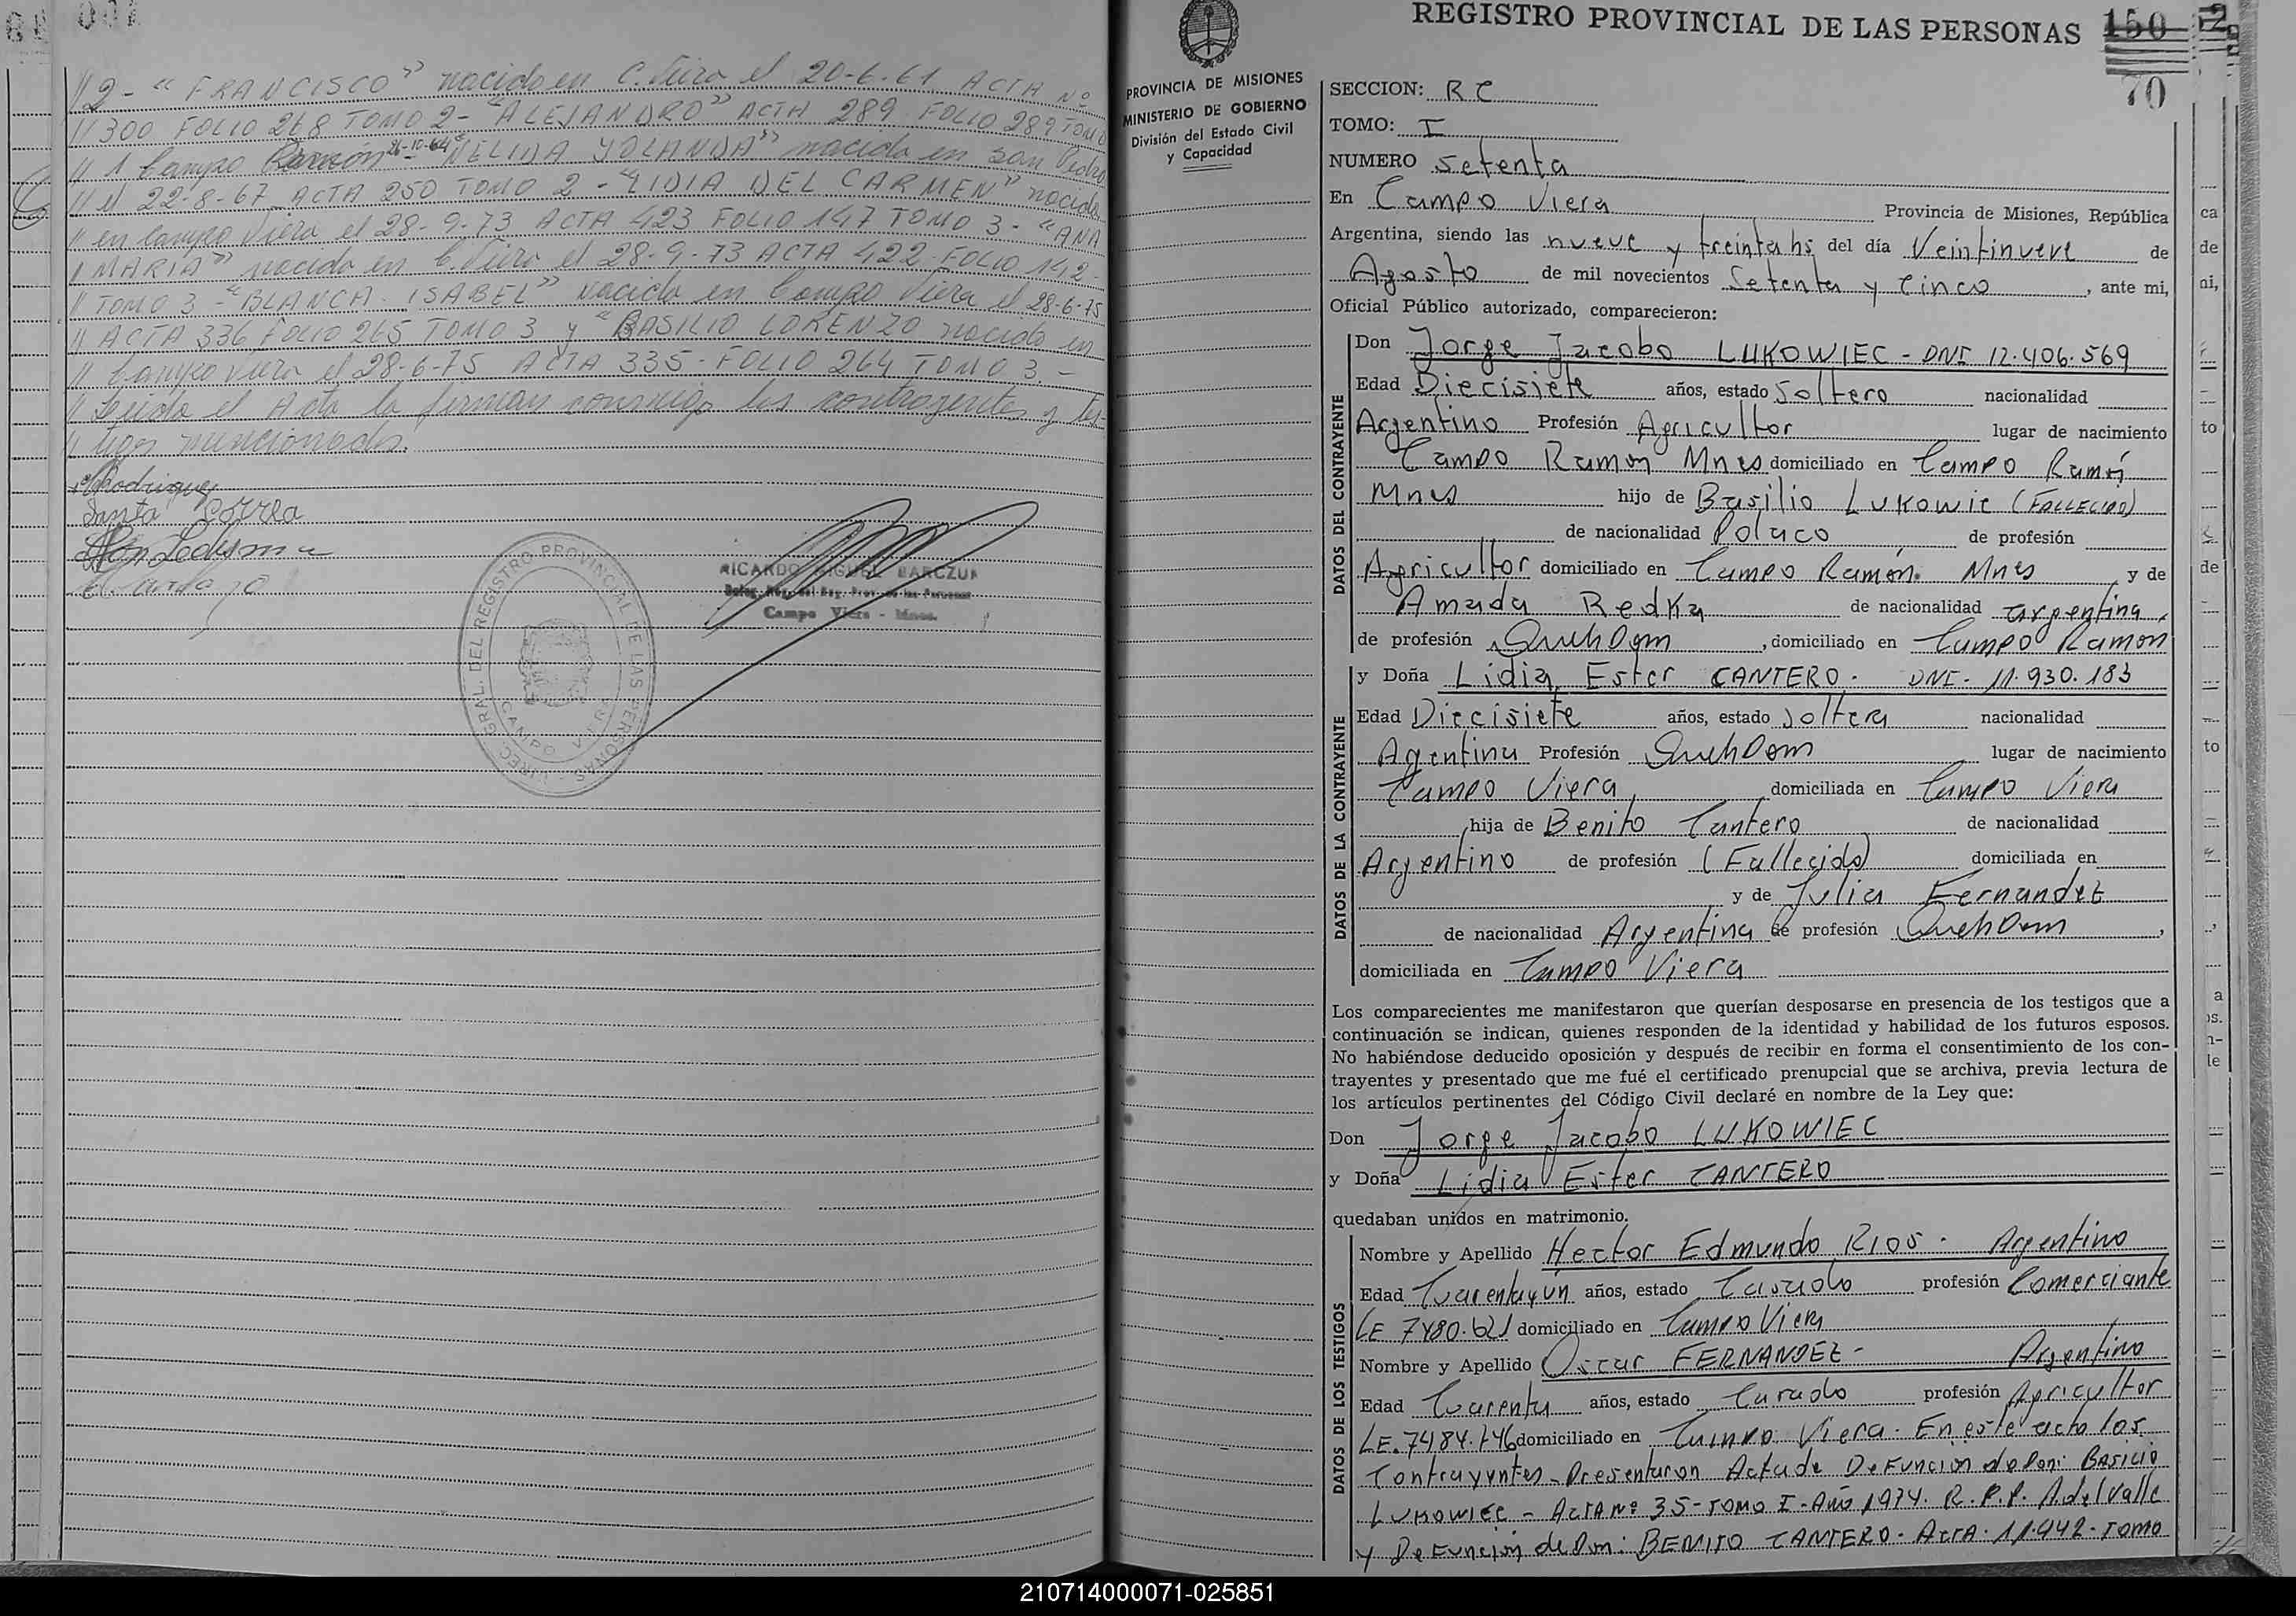 //2- "FRANCISCO" nacido en C. Viera el 20-6-61 ACTA Nº
//300 FOLIO 268 TOMO 2- "ALEJANDRO" ACTA 289 FOLIO 289 TOMO
// 1 Campo Ramón 26-10-64 "NELIDA YOLANDA" nacida en San Pedro
// el 22-8-67 ACTA 250 TOMO 2 - "LIDIA DEL CARMEN" nacida
// en Campo Viera el 28-9-73 ACTA 423 FOLIO 147 TOMO 3 - "ANA
// MARIA" nacida en C. Viera el 28-9-73 ACTA 422 FOLIO 142-
// TOMO 3 - "BLANCA ISABEL" nacida en Campo Viera el 28-6-75
// ACTA 336 FOLIO 265 TOMO 3 y "BASILIO LORENZO nacido en
// Campo Viera el 28-6-75 ACTA 335- FOLIO 264 TOMO 3.-
// Leida el Acta la firman conmigo los contrayentes y tes-
// tigos mencionados.
Rodriguez
Santa Correa
Ledesma
RICARDO MIGUEL BARCZUK
Deleg. Reg. del Reg. Prov. de las Personas
Campo Viera - Mnes.
DIREC. GRAL. DEL REGISTRO PROVINCIAL DE LAS PERSONAS
CAMPO VIERA
REGISTRO PROVINCIAL DE LAS PERSONAS
150
70
PROVINCIA DE MISIONES
MINISTERIO DE GOBIERNO
División del Estado Civil
y Capacidad
SECCION: RC
TOMO: I
NUMERO setenta
En Campo Viera Provincia de Misiones, República
Argentina, siendo las nueve y treinta hs del día Veintinueve de
Agosto de mil novecientos Setenta y Cinco, ante mi,
Oficial Público autorizado, comparecieron:
DATOS DEL CONTRAYENTE
Don Jorge Jacobo LUKOWIEC - DNI 12.406.569
Edad Diecisiete años, estado Soltero nacionalidad
Argentino Profesión Agricultor lugar de nacimiento
Campo Ramon Mnes domiciliado en Campo Ramón
Mnes hijo de Basilio Lukowic (FALLECIDO)
de nacionalidad Polaco de profesión
Agricultor domiciliado en Campo Ramón. Mnes y de
Amada Redka de nacionalidad argentina,
de profesión QuehDom, domiciliado en Campo Ramon
DATOS DE LA CONTRAYENTE
y Doña Lidia Ester CANTERO. DNI- 11.930.183
Edad Diecisiete años, estado soltera nacionalidad
Agentina Profesión QuehDom lugar de nacimiento
Campo Viera, domiciliada en Campo Viera
hija de Benito Cantero de nacionalidad
Argentino de profesión (Fallecido) domiciliada en
y de Julia Fernandez
de nacionalidad Argentina de profesión QuehDom,
domiciliada en Campo Viera
Los comparecientes me manifestaron que querían desposarse en presencia de los testigos que a
continuación se indican, quienes responden de la identidad y habilidad de los futuros esposos.
No habiéndose deducido oposición y después de recibir en forma el consentimiento de los con-
trayentes y presentado que me fué el certificado prenupcial que se archiva, previa lectura de
los artículos pertinentes del Código Civil declaré en nombre de la Ley que:
Don Jorge Jacobo LUKOWIEC
y Doña Lidia Ester CANTERO
quedaban unidos en matrimonio.
DATOS DE LOS TESTIGOS
Nombre y Apellido Hector Edmundo RIOS. Argentino
Edad Cuarentayún años, estado Casado profesión Comerciante
LE 7480.621 domiciliado en Campo Viera
Nombre y Apellido Oscar FERNANDEZ- Argentino
Edad Cuarenta años, estado Casado profesión Agricultor
LE. 7484.746 domiciliado en Campo Viera. En este acto los
Contrayentes-Presentaron Acta de Defuncion de Don: BASILIO
LUKOWIEC - ACTA Nº 35- TOMO I - Año 1974. R.P.P. A. del Valle
y Defunción de Don: BENITO CANTERO. ACTA. 11.942- TOMO
210714000071-025851